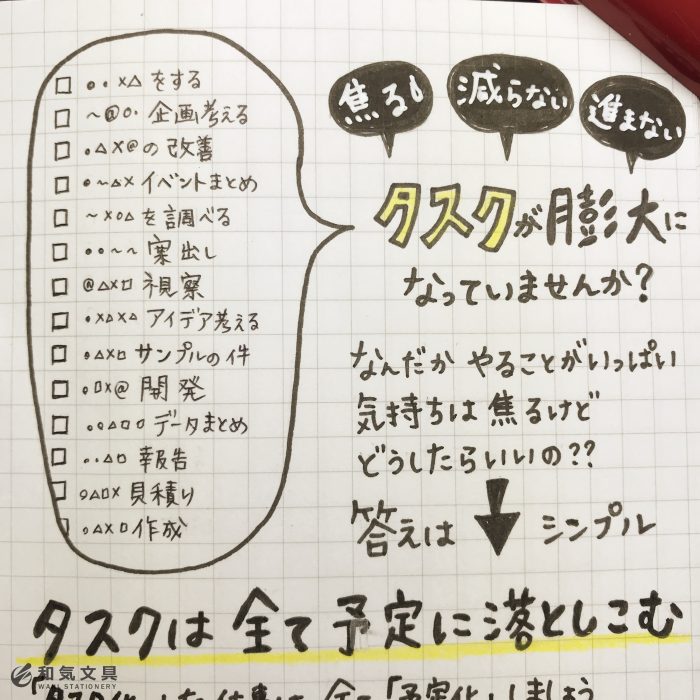 □ ・・×△をする
□ 〜@○・企画考える
□ ・△×@の改善
□ ・〜△×イベントまとめ
□ 〜×○△を調べる
□ ・・〜〜案出し
□ @△×□視察
□ ・×△×△アイデア考える
□ ・△×□サンプルの件
□ ○□×@開発
□ ・○△□□データまとめ
□ ・・△□報告
□ ○△□×見積り
□ ○△×□作成
焦る
減らない
進まない
タスクが膨大に
なっていませんか?
なんだか やることがいっぱい
気持ちは焦るけど
どうしたらいいの??
答えは シンプル
タスクは全て予定に落としこむ
和気文具
WAKI STATIONERY
全て「予定化」しましょう